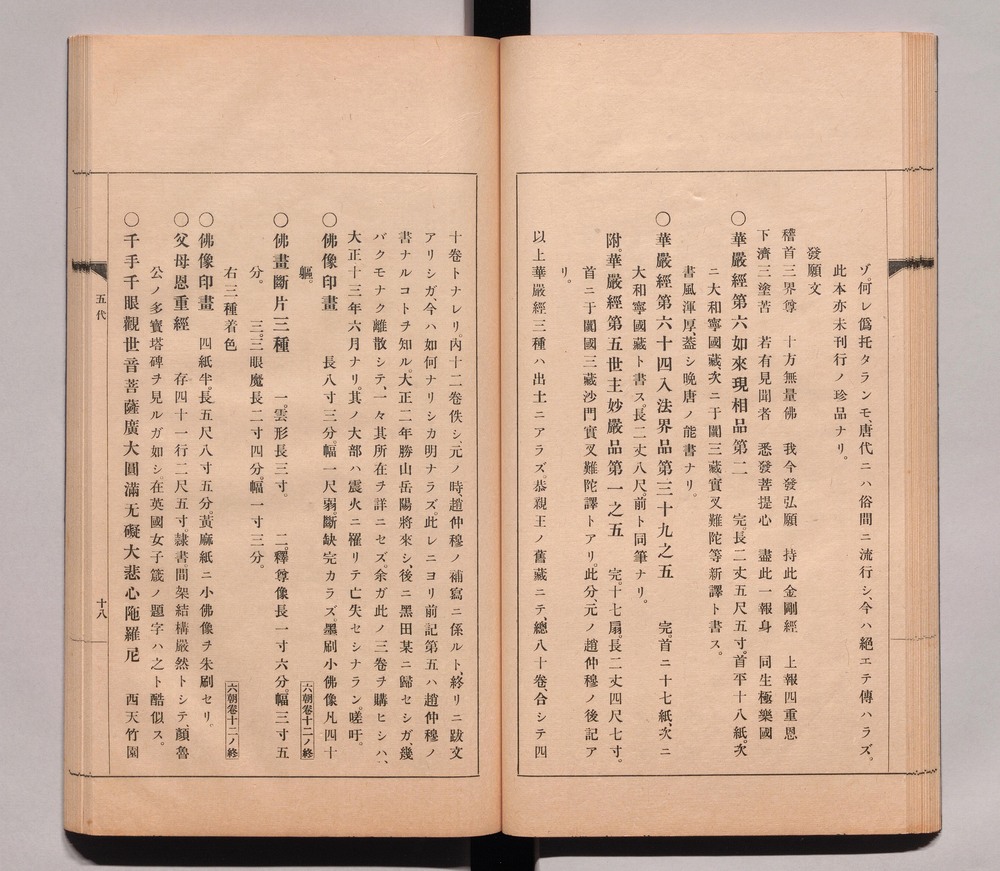 ゾ。何レ僞托タランモ、唐代ニハ俗間ニ流行シ、今ハ絕エテ傳ハラズ。
此本亦未刊行ノ珍品ナリ。
發願文
稽首三界尊　十方無量佛　我今發弘願　持此金剛經　上報四重恩
下濟三塗苦　若有見聞者　悉發菩提心　盡此一報身　同生極樂國
〇華嚴經第六如來現相品第二　完。長二丈五尺五寸。首平十八紙。次
ニ大和寧國藏、次ニ于闐三藏實叉難陀等新譯ト書ス。
書風渾厚、蓋シ晚唐ノ能書ナリ。
〇華嚴經第六十四入法界品第三十九之五　完首二十七紙、次ニ
大和寧國藏ト書ス。長二丈八尺。前ト同筆ナリ。
附。華嚴經第五世主妙嚴品第一之五　完。十七扇。長二丈四尺七寸。
首ニ于闐國三藏沙門實叉難陀譯トアリ。此分、元ノ趙仲穆ノ後記ア
リ。
以上華嚴經三種ハ出土ニアラズ。恭親王ノ舊藏ニテ、總八十卷、合シテ四
十卷トナレリ。內十二卷佚シ、元ノ時、趙仲穆ノ補寫ニ係ルト、終リニ跋文
アリシガ、今ハ如何ナリシカ明ナラズ。此レニヨリ前記第五ハ趙仲穆ノ
書ナルコトヲ知ル。大正二年勝山岳陽將來シ、後ニ黑田某ニ歸セシガ、幾
バクモナク離散シテ、一々其所在ヲ詳ニセズ。余ガ此ノ三卷ヲ購ヒシハ、
大正十三年六月ナリ。其ノ大部ハ震火ニ罹リテ亡失セシナラン。嗟吁。
〇佛像印畫　長八寸三分。幅一尺弱。斷缺完カラズ。墨刷小佛像凡四十
軀。
六朝卷十二ノ終
〇佛畫斷片三種　一。雲形長三寸。　二。釋尊像長一寸六分。幅三寸五
分。　三。三眼魔長二寸四分。幅一寸三分。
右三種着色
六朝卷十二ノ終
〇佛像印畫　四紙半。長五尺八寸五分。黃麻紙ニ小佛像ヲ朱刷セリ。
〇父母恩重經　存四十一行二尺五寸。隷書。間架結構嚴然トシテ、顏魯
公ノ多寶塔碑ヲ見ルガ如シ。在英國女子箴ノ題字ハ之ト酷似ス。
〇千手千眼觀世音菩薩廣大圓滿无礙大悲心陁羅尼　西天竹園
五代
十八